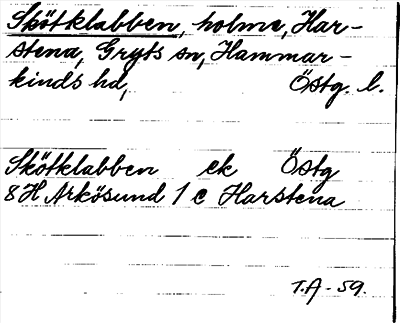 Skötklabben, holme, Har-
stena, Gryts sn, Hammar-
kinds hd, Östg. l.
Skötklabben ek Östg
8H Arkösund 1 c Harstena
T.A - 59.